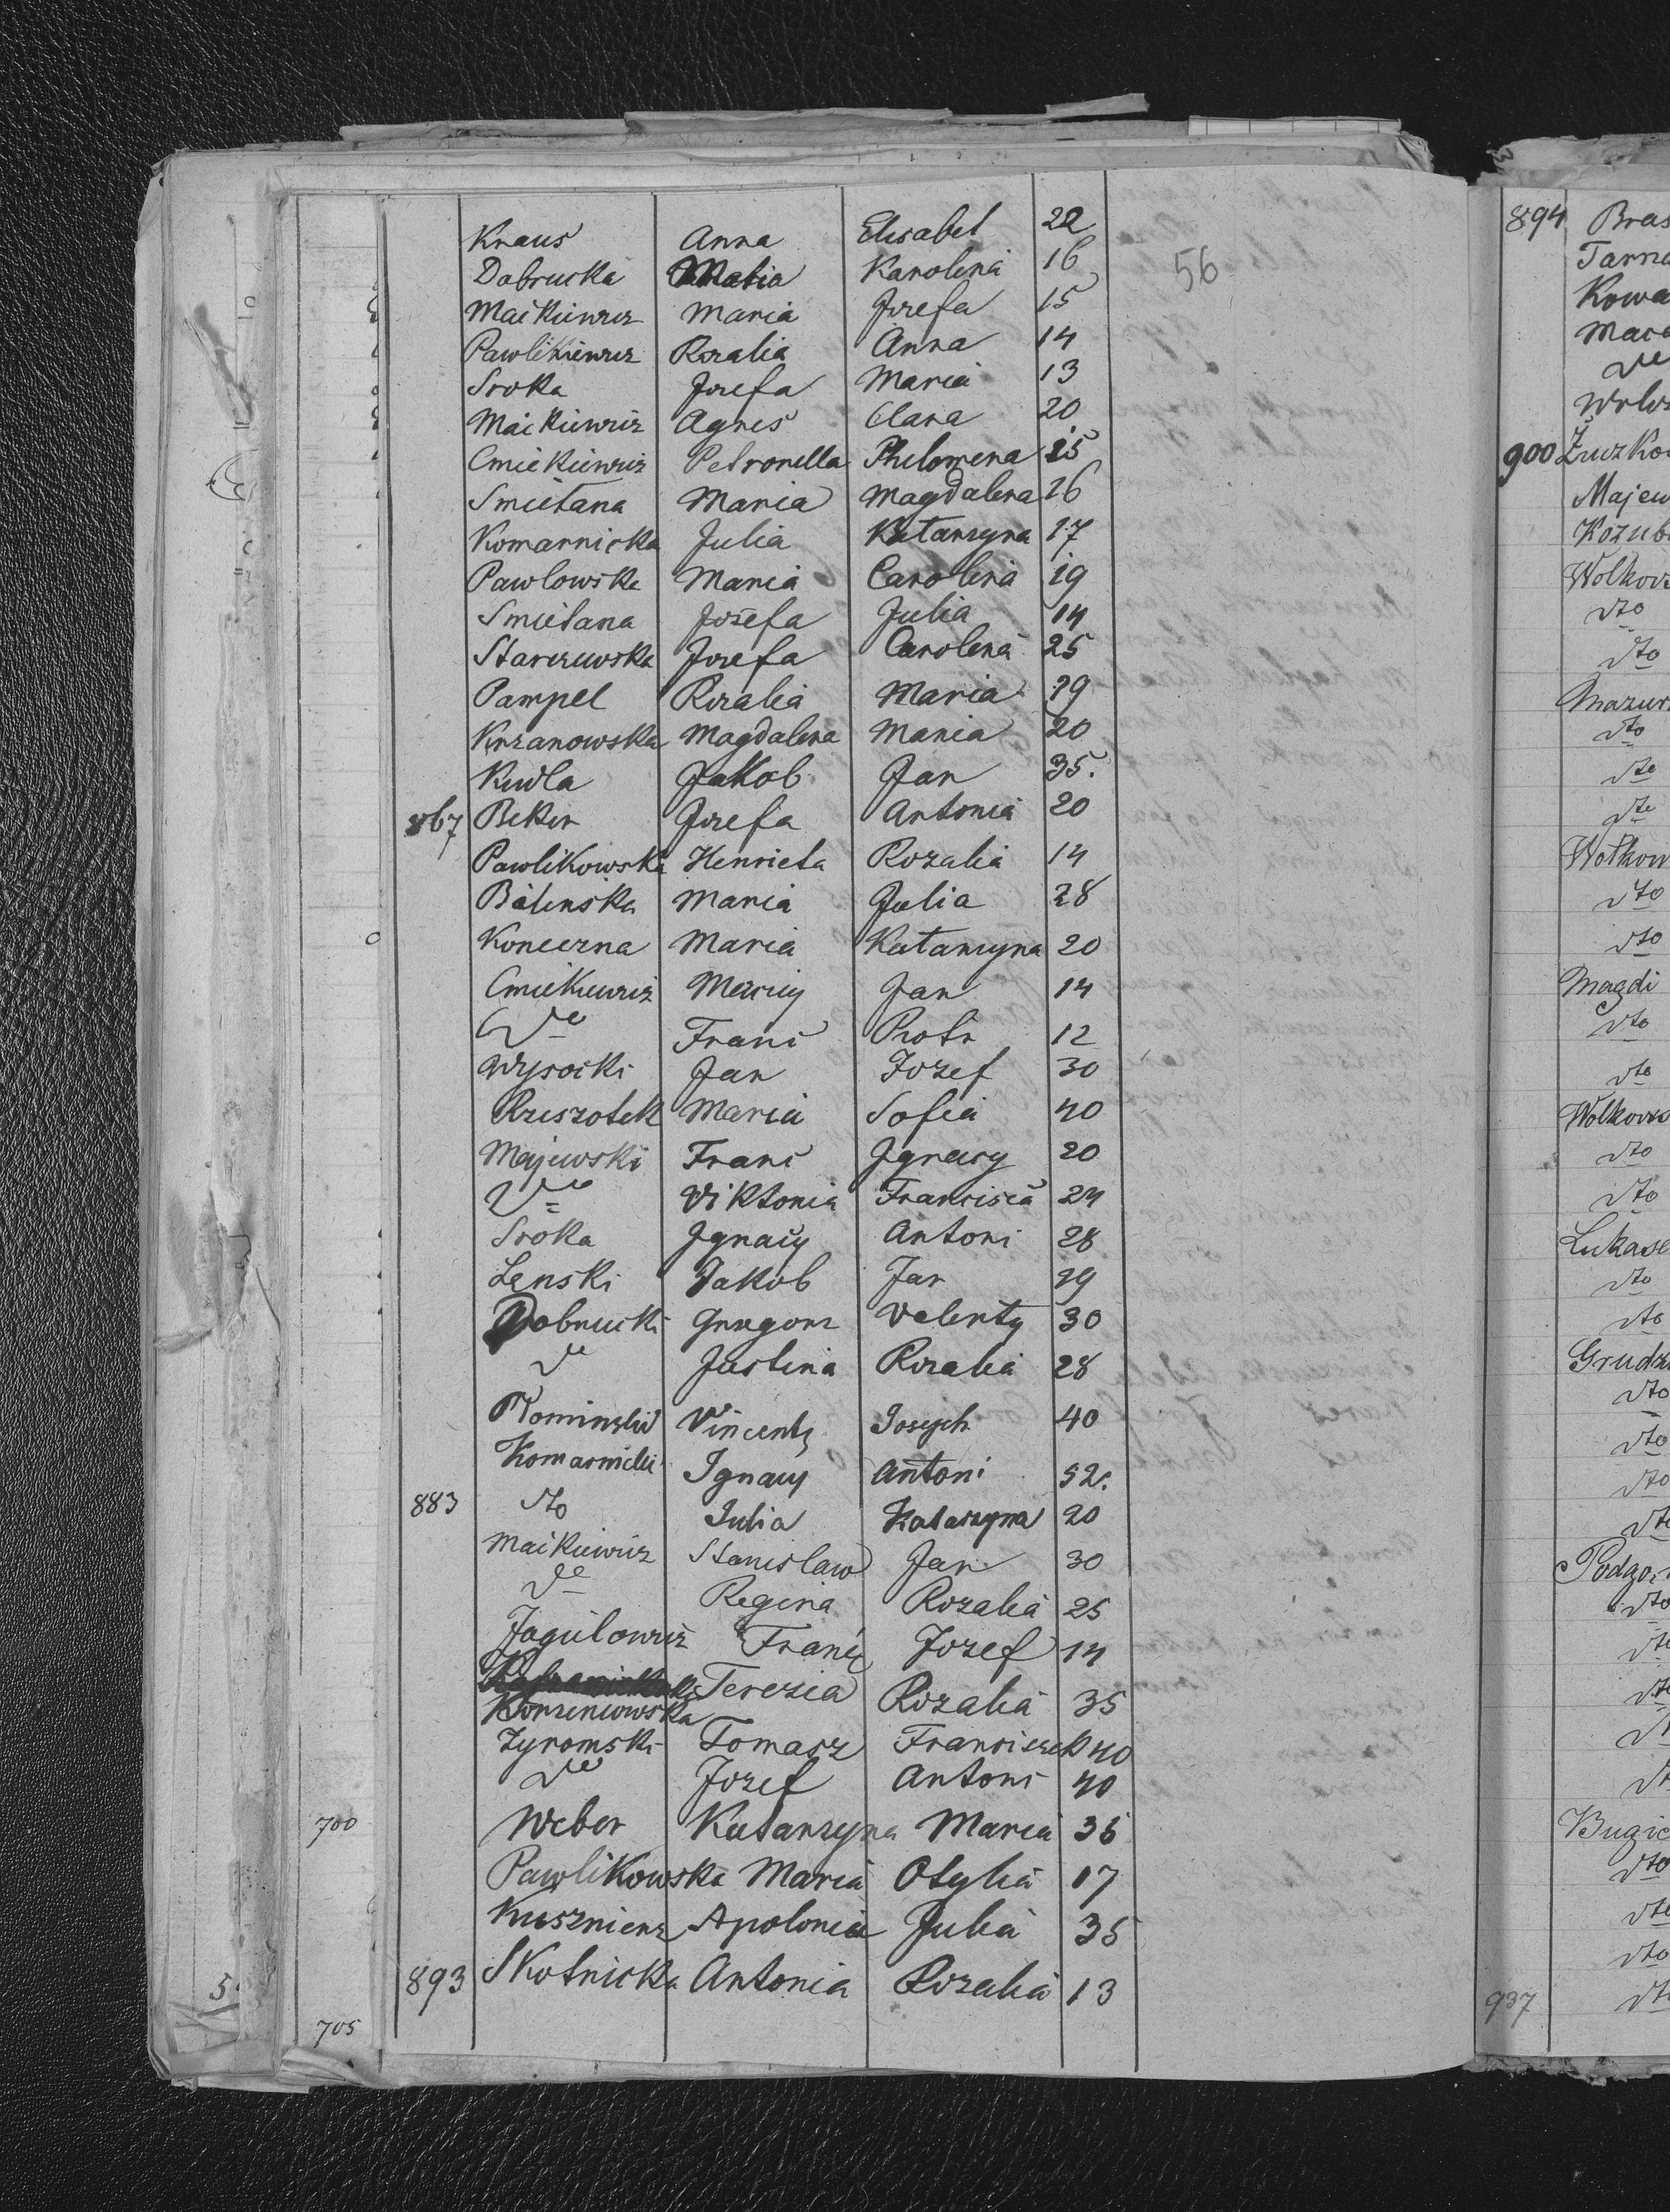 Kraus Anna Elisabet 22
Dobrucka Maria Karolina 16 56
Maćkiewicz Maria Jozefa 15
Pawlikiewicz Rozalia Anna 14
Sroka Jozefa Maria 13
Maćkiewicz Agnes Clara 20
Cmiekiewicz Petronella Philomena 15
Smietana Maria Magdalena 26
Komarnicka Julia Katarzyna 17
Pawlowska Maria Carolina 19
Smietana Jozefa Julia 14
Starczewska Jozefa Carolina 25
Pampel Rozalia Maria 19
Krzanowska Magdalena Maria 20
Kudla Jakob Jan 35.
867 Beker Jozefa Antonia 20
Pawlikowska Henrieta Rozalia 14
Bilinska Maria Julia 28
Konieczna Maria Katarzyna 20
Cmiekiewicz Maciej Jan 14
dto Franc Piotr 12
Wysocki Jan Jozef 30
Rzeszotek Maria Sofia 40
Majewski Franc Ignacy 20
dto Viktoria Francisca 24
Sroka Ignacy Antoni 28
Lenski Jakob Jan 29
Dobrucki Grzegorz Valenty 30
dto Justina Rozalia 28
Kominski Vincenty Joseph 40
Komarnicki Ignacy Antoni 52.
883 dto Julia Katarzyna 20
Maćkiewicz Stanislaw Jan 30
dto Regina Rozalia 25
Jagielowicz Franc Jozef 14
Terezia Rozalia 35
Korzeniowska
Zyromski Tomasz Franciszek 40
dto Jozef Antoni 40
700 Weber Katarzyna Maria 36
Pawlikowska Maria Otylia 17
Kusznierz Apolonia Julia 35
893 Skotnicka Antonia Rozalia 13
705
894 Bras
Tarna
Kowa
Mac
dto
900 Zuzko
Majew
Kozub
Wolkow
dto
dto
Mazur
dto
dto
dto
Wolkow
dto
dto
Magdi
dto
dto
Wolkows
dto
dto
Lukase
dto
dto
Grudz
dto
dto
dto
dto
Podgor
dto
Bugie
dto
dto
dto
937 dto